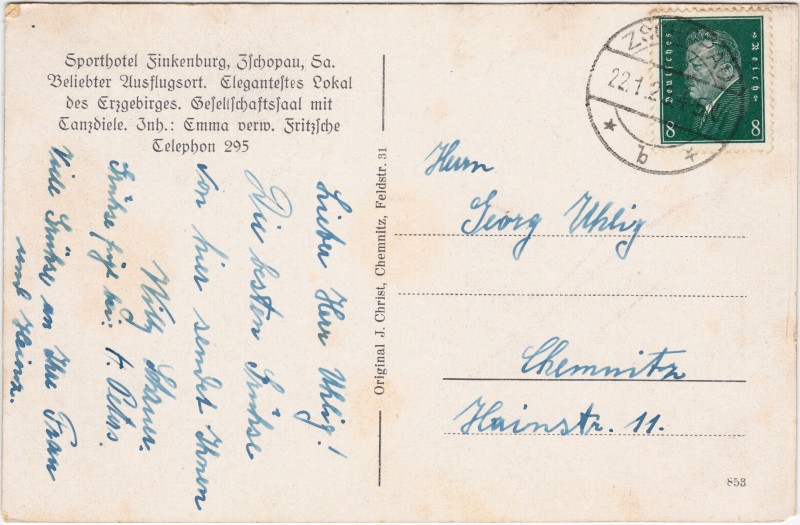 Sporthotel Finkenburg, Zschopau, Sa.
Beliebter Ausflugsort. Elegantestes Lokal
des Erzgebirges. Gesellschaftssaal mit
Tanzdiele. Inh.: Emma verw. Fritzsche
Telephon 295
Lieber Herr Uhlig!
Die besten Grüße
von hier sendet Ihnen
Willy
Grüße fügt bei:
Viele Grüße an Ihre Frau
und Heinz.
Original J. Christ, Chemnitz, Feldstr. 31
22.1.2
b
Deutsches Reich
8 8
Herrn
Georg Uhlig
Chemnitz
Hainstr. 11.
853